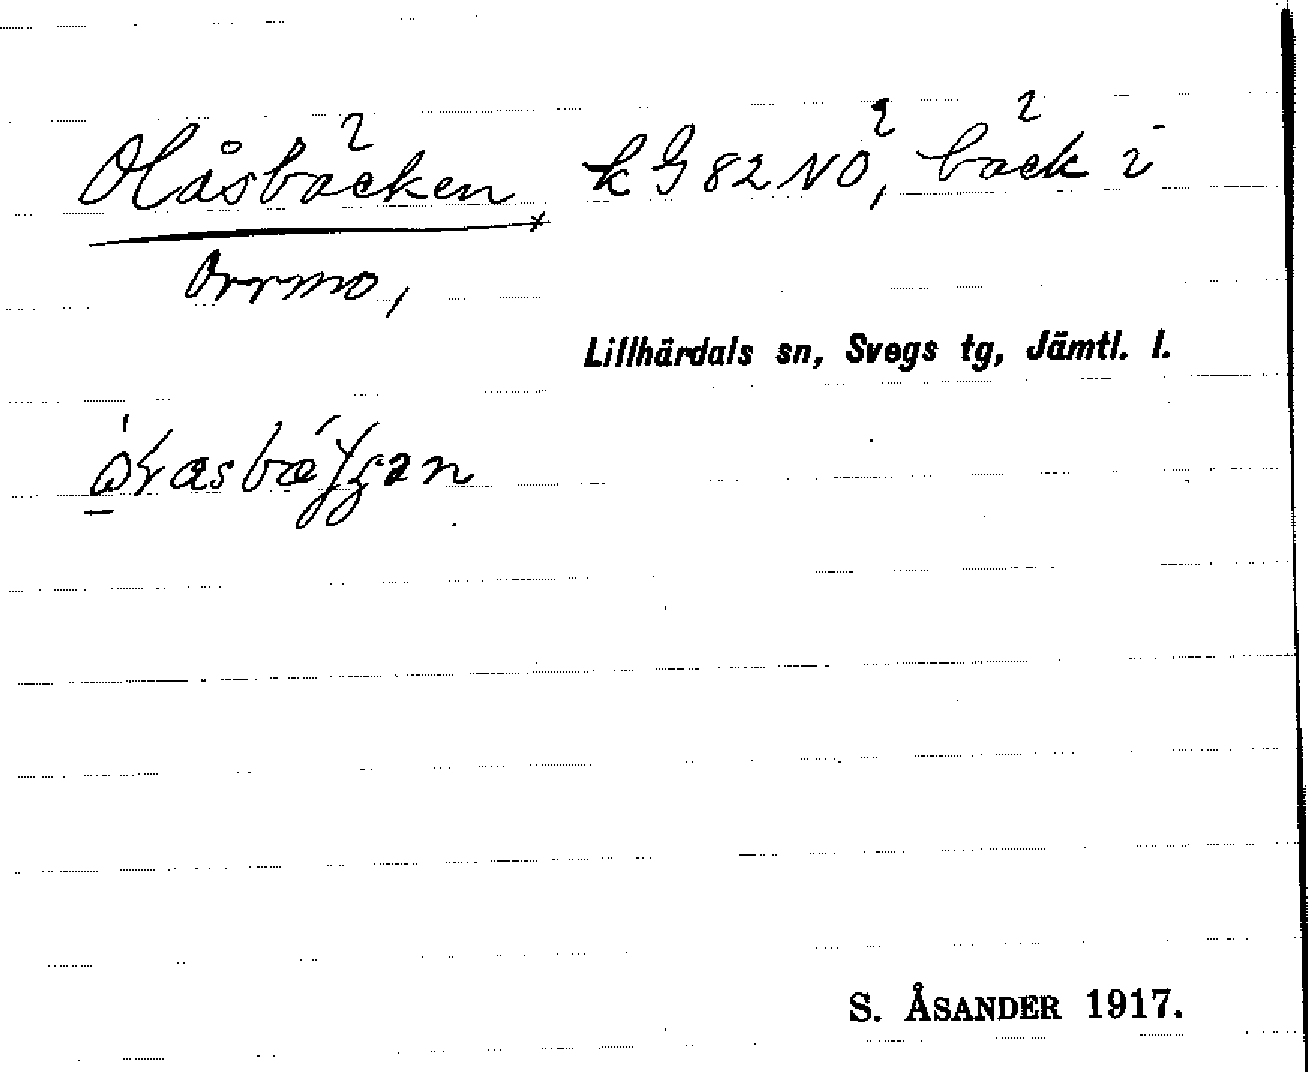 Olåsbäcken k G 82 NÖ, bäck i
Orrmo,
Lillhärdals sn, Svegs tg, Jämtl. l.
S. ÅSANDER 1917.